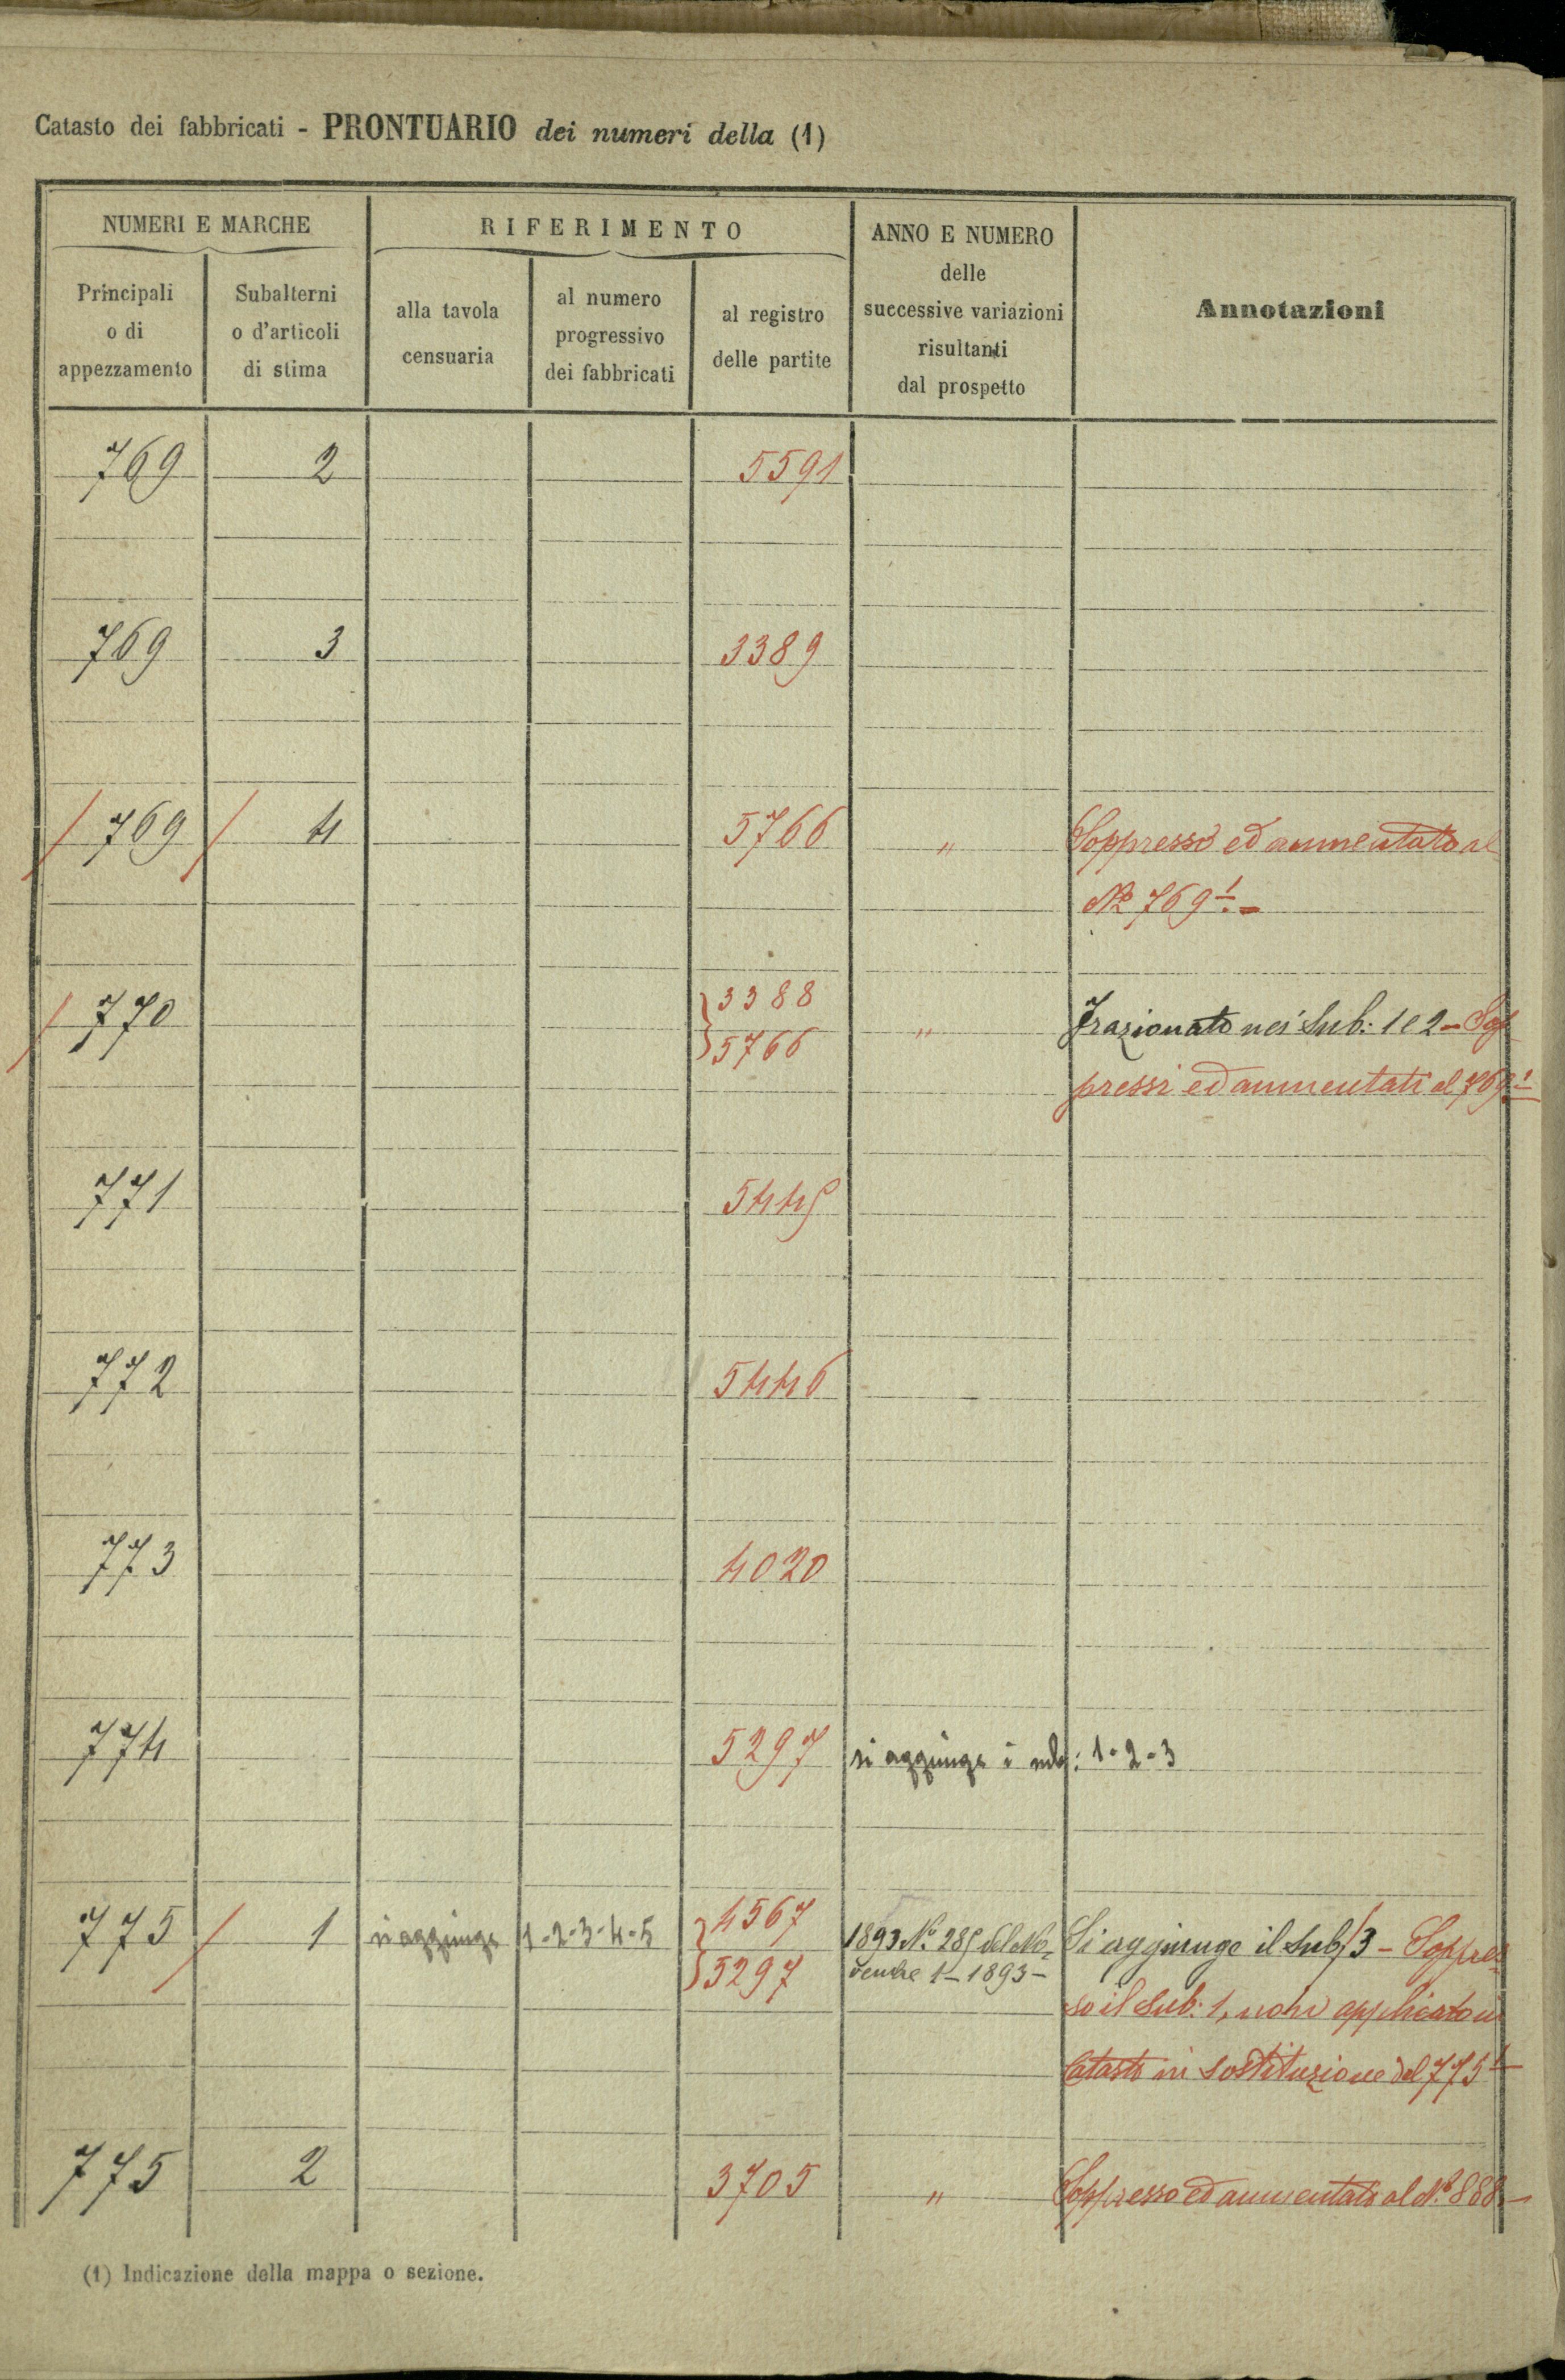 Catasto dei fabbricati - PRONTUARIO dei numeri della (1)
NUMERI E MARCHE
RIFERIMENTO
ANNO E NUMERO
delle
successive variazioni
risultanti
dal prospetto
Annotazioni
Principali
o di
appezzamento
Subalterni
o d'articoli
di stima
alla tavola
censuaria
al numero
progressivo
dei fabbricati
al registro
delle partite
769 2 5591
769 3 3389
769 4 5766 " Soppresso ed aumentato al
No 769 1.-
770 3388
5766 " Frazionato nei Sub: 1 e 2 - Sop
pressi ed aumentati al 769 1
771 5445
772 5446
773 4020
774 5297 si aggiunge i sub: 1-2-3
775 1 si aggiunge 1-2-3-4-5 4567
5297
1893 No 285 del
1-1893-
Si aggiunge il Sub/3 - Soppres
so il Sub: 1, non applicato in
Catasto in sostituzione del 775 1
775 2 3705 " Soppresso ed aumentato al No 888-
(1) Indicazione della mappa o sezione.